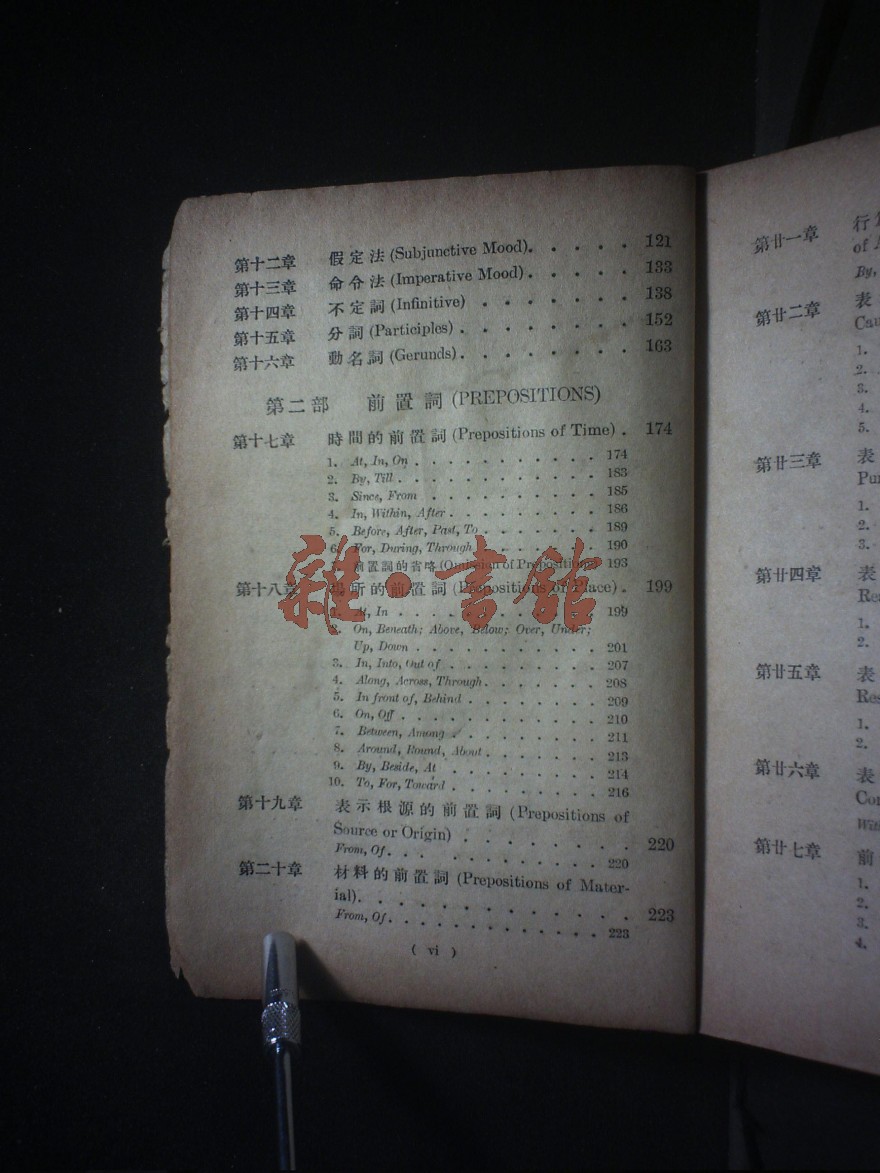 第十二章 假定法 (Subjunctive Mood). . . . . 121
第十三章 命令法 (Imperative Mood) . . . . . 133
第十四章 不定詞 (Infinitive) . . . . . . . 138
第十五章 分詞 (Participles) . . . . . . . . 152
第十六章 動名詞 (Gerunds) . . . . . . . . 163
第二部 前置詞 (PREPOSITIONS)
第十七章 時間的前置詞 (Prepositions of Time) . 174
1. At, In, On . . . . . . . . . . . 174
2. By, Till . . . . . . . . . . . . 183
3. Since, From . . . . . . . . . . 185
4. In, Within, After . . . . . . . . 186
5. Before, After, Past, To . . . . . . . 189
6. For, During, Through . . . . . . . 190
前置詞的省略 (Omission of Prepositions) 193
第十八章 場所的前置詞 (Prepositions of Place) . 199
1. At, In . . . . . . . . . . . . 199
2. On, Beneath; Above, Below; Over, Under;
Up, Down . . . . . . . . . . . 201
3. In, Into, Out of . . . . . . . . . 207
4. Along, Across, Through . . . . . . . 208
5. In front of, Behind . . . . . . . . 209
6. On, Off . . . . . . . . . . . . 210
7. Between, Among . . . . . . . . . 211
8. Around, Round, About . . . . . . . 213
9. By, Beside, At . . . . . . . . . 214
10. To, For, Toward . . . . . . . . . 216
第十九章 表示根源的前置詞 (Prepositions of
Source or Origin) . . . . . . . . 220
From, Of . . . . . . . . . . . 220
第二十章 材料的前置詞 (Prepositions of Mater-
ial) . . . . . . . . . . . . 223
From, Of . . . . . . . . . . . . 223
( vi )
雜·書館
第廿一章 行
of
By,
第廿二章 表
Cau
1.
2.
3.
4.
5.
第廿三章 表
Pu
1.
2.
3.
第廿四章 表
Rea
1.
2.
第廿五章 表
Res
1.
2.
第廿六章 表
Con
With
第廿七章 前
1.
2.
3.
4.